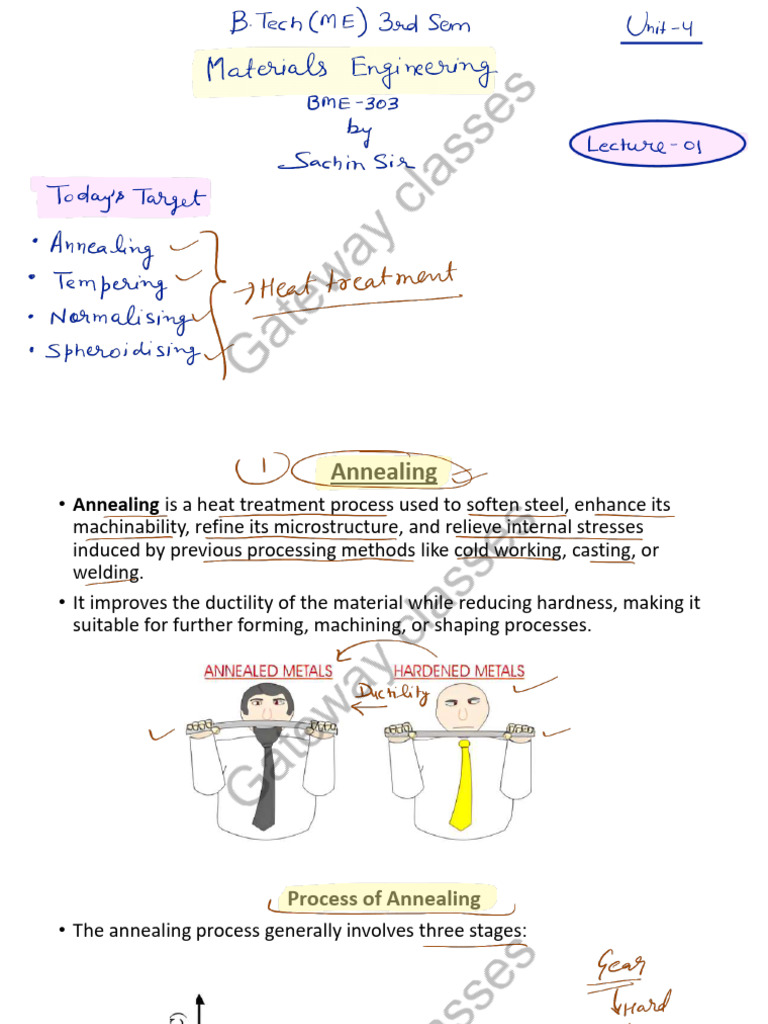 B.Tech (ME) 3rd Sem
Unit-4
Materials Engineering
BME-303
by
Sachin Sir
Lecture-01
Today's Target
• Annealing
• Tempering
• Normalising
• Spheroidising
→ Heat treatment
Gateway classes
1
Annealing
• Annealing is a heat treatment process used to soften steel, enhance its
machinability, refine its microstructure, and relieve internal stresses
induced by previous processing methods like cold working, casting, or
welding.
• It improves the ductility of the material while reducing hardness, making it
suitable for further forming, machining, or shaping processes.
Gateway classes
ANNEALED METALS HARDENED METALS
Ductility
Process of Annealing
• The annealing process generally involves three stages:
Gear
Hard